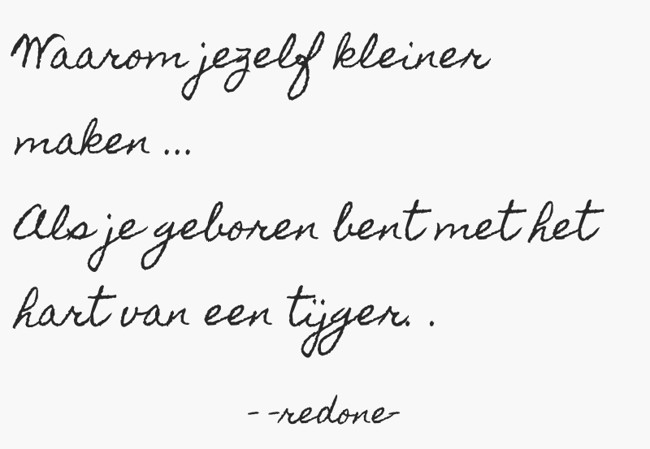 Waarom jezelf kleiner
maken ...
Als je geboren bent met het
hart van een tijger. .
--redone-